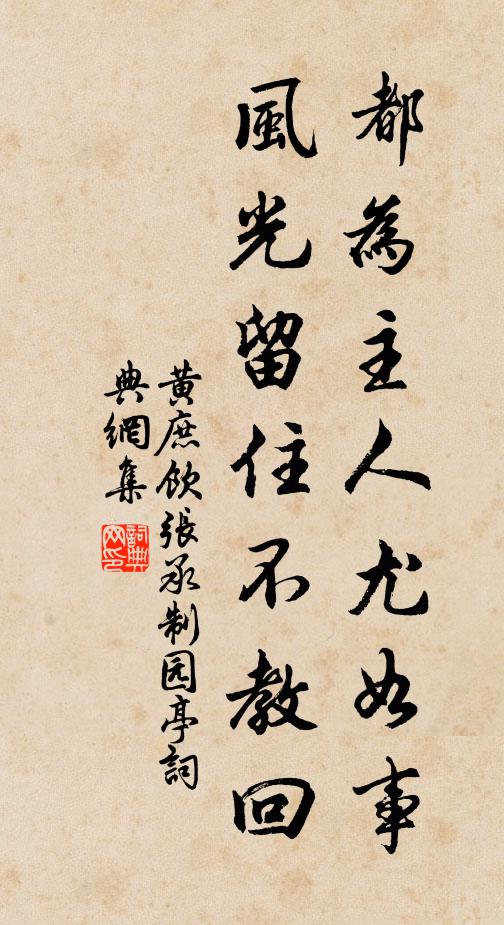 都為主人尤好事
風光留住不教回
黃庶飲張承制园亭詞
典網集
詞典
网印